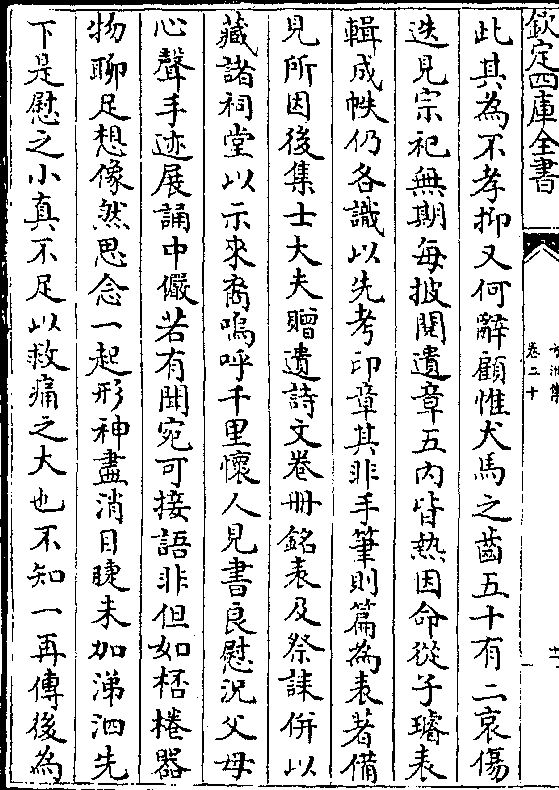 欽定四庫全書
卷二十
此其為不孝抑又何辭顧惟犬馬之齒五十有二哀傷
迭見宗祀無期每披閱遺章五內皆熱因命從子璿表
輯成帙仍各識以先考印章其非手筆則篇為表著備
見所因後集士大夫贈遺詩文卷冊銘表及祭誄併以
藏諸祠堂以示來裔嗚呼千里懷人見書良慰況父母
心聲手迹展誦中儼若有聞宛可接語非但如桮棬器
物聊足想像然思念一起形神盡消目睫未加涕泗先
下是慰之小真不足以救痛之大也不知一再傳後為